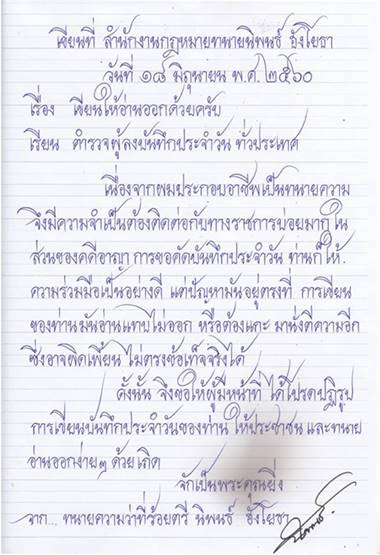 เขียนที่ สำนักงานกฎหมายทนายนิพนธ์ อังโยธา
วันที่ ๑๘ มิถุนายน พ.ศ. ๒๕๖๐
เรื่อง เขียนให้อ่านออกด้วยครับ
เรียน ตำรวจผู้ลงบันทึกประจำวัน ทั่วประเทศ
เนื่องจากผมประกอบอาชีพเป็นทนายความ
จึงมีความจำเป็นต้องติดต่อกับทางราชการบ่อยมาก ใน
ส่วนของคดีอาญา การขอคัดบันทึกประจำวัน ท่านก็ให้
ความร่วมมือเป็นอย่างดี แต่ปัญหามันอยู่ตรงที่ การเขียน
ของท่านมันอ่านแทบไม่ออก หรือต้องแกะ มานั่งตีความอีก
ซึ่งอาจผิดเพี้ยน ไม่ตรงข้อเท็จจริงได้
ดังนั้น จึงขอให้ผู้มีหน้าที่ ได้โปรดปฏิรูป
การเขียนบันทึกประจำวันของท่าน ให้ประชาชน และทนาย
อ่านออกง่ายๆ ด้วยเถิด
จักเป็นพระคุณยิ่ง
จาก... ทนายความว่าที่ร้อยตรี นิพนธ์ อังโยธา